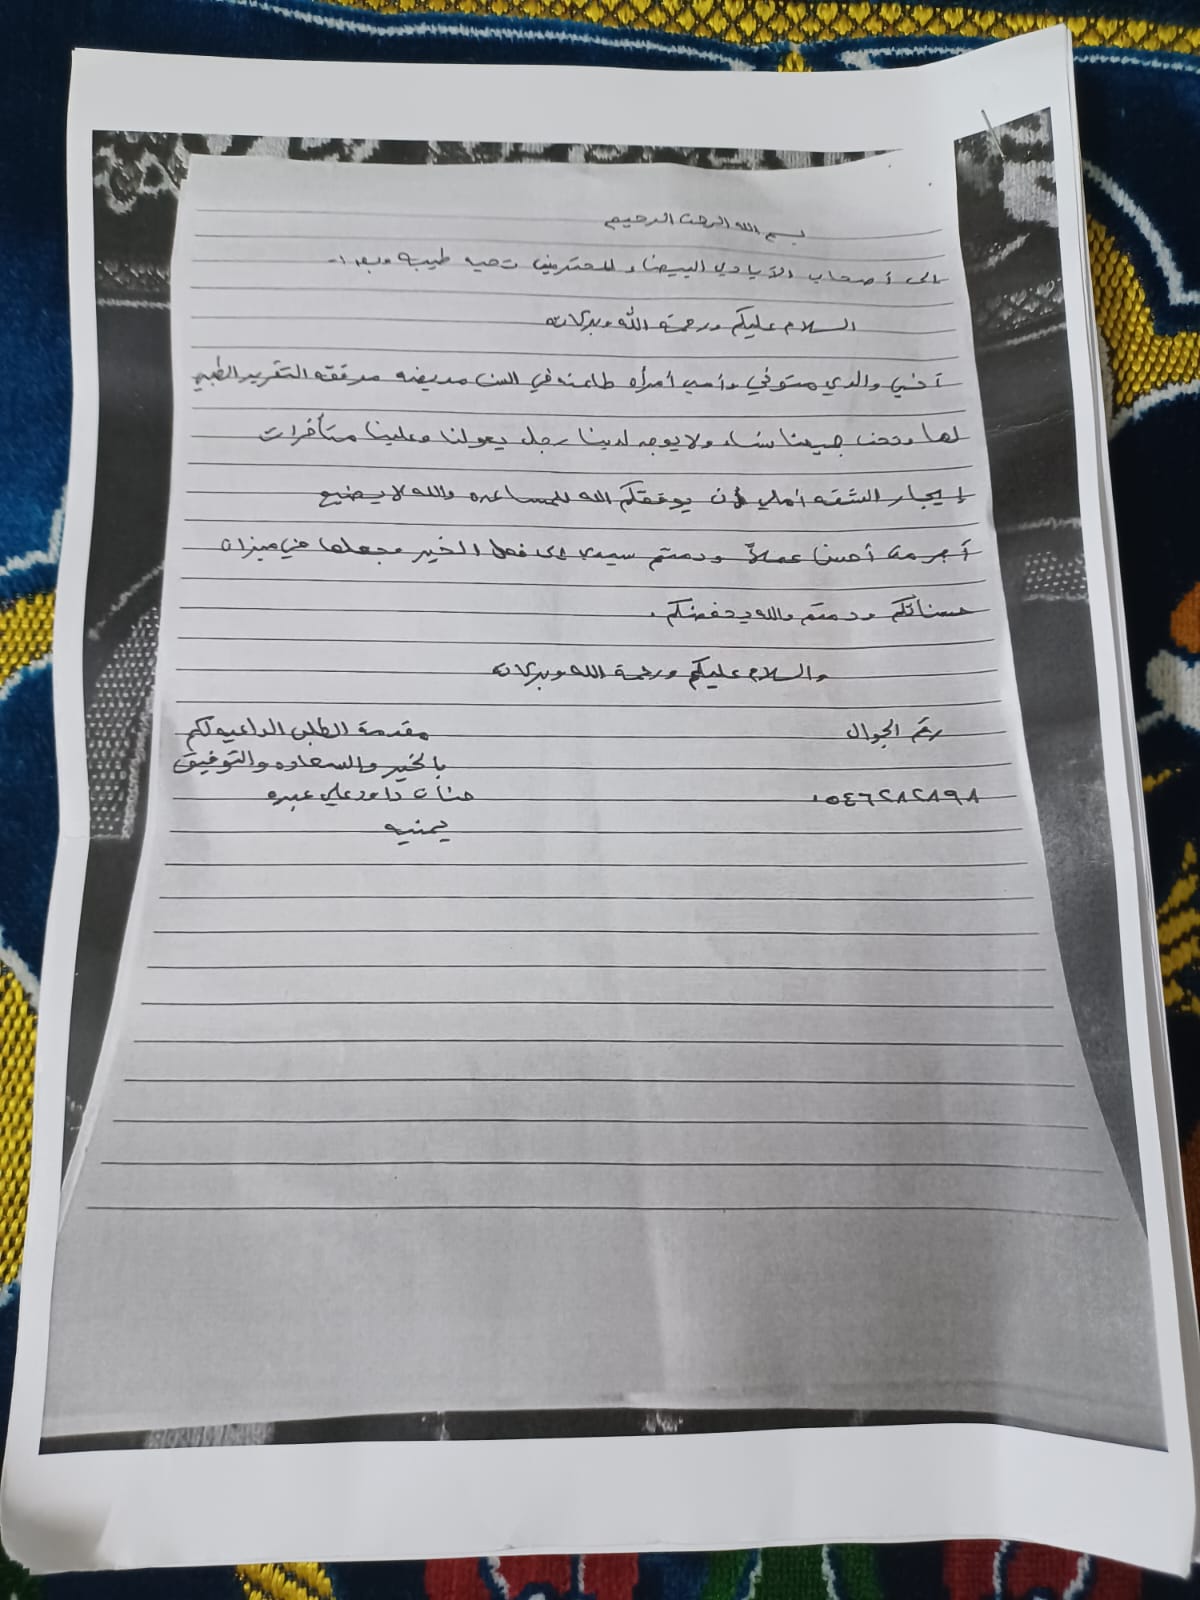 بسم الله الرحمن الرحيم
إلى أصحاب الأيادي البيضاء المحترمين تحيه طيبه وبعد :-
السلام عليكم ورحمة الله وبركاته
أخي والدي متوفي وأمي أمرأه طاعنه في السن مريضه مرفقه التقرير الطبي
لها ونحن جميعنا نساء ولا يوجد لدينا رجل يعولنا وعلينا متأخرات
إيجار الشقه أملي أن يوفقكم الله للمساعده والله لا يضيع
أجر من أحسن عملاً ودمتم الخير وجعلها في ميزان
حسناتكم ودمتم والله يحفضكم .
والسلام عليكم ورحمة الله وبركاته
رقم الجوال
مقدمة الطلب الداعيه لكم
بالخير والسعاده والتوفيق
٠٥٤٦٢٨٢٨٩٨
حنان داود علي عبده
يمنيه